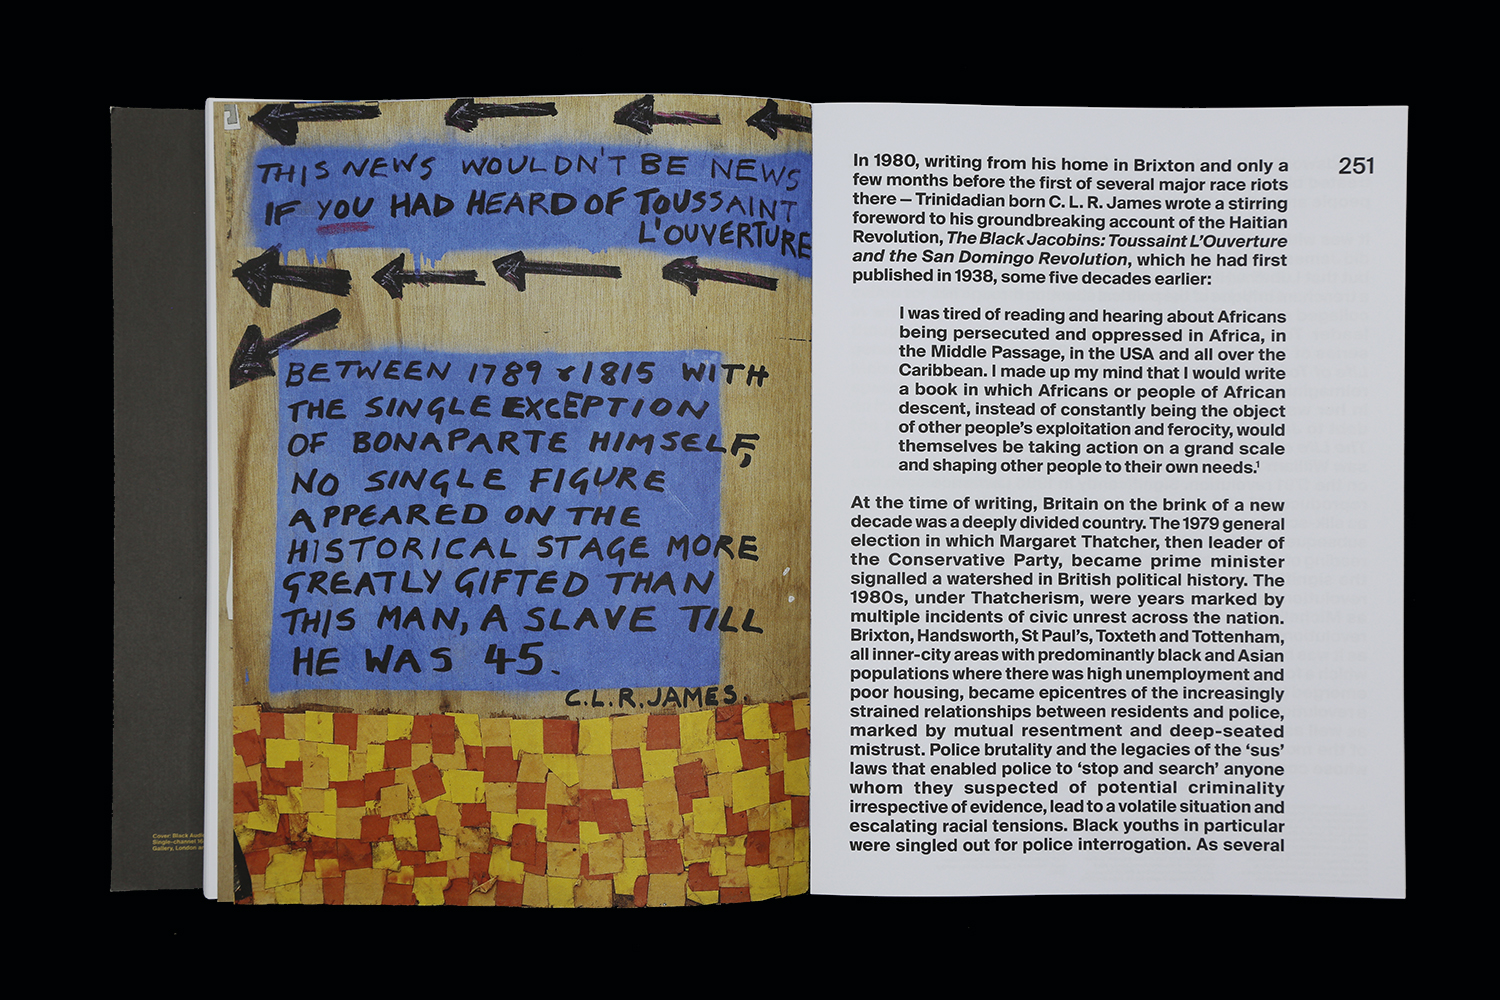 THIS NEWS WOULDN'T BE NEWS
IF YOU HAD HEARD OF TOUSSAINT
L'OUVERTURE
BETWEEN 1789 & 1815 WITH
THE SINGLE EXCEPTION
OF BONAPARTE HIMSELF,
NO SINGLE FIGURE
APPEARED ON THE
HISTORICAL STAGE MORE
GREATLY GIFTED THAN
THIS MAN, A SLAVE TILL
HE WAS 45.
C.L.R. JAMES
Cover: Black
Single-channel
Gallery, London
251
In 1980, writing from his home in Brixton and only a
few months before the first of several major race riots
there — Trinidadian born C. L. R. James wrote a stirring
foreword to his groundbreaking account of the Haitian
Revolution, The Black Jacobins: Toussaint L'Ouverture
and the San Domingo Revolution, which he had first
published in 1938, some five decades earlier:
I was tired of reading and hearing about Africans
being persecuted and oppressed in Africa, in
the Middle Passage, in the USA and all over the
Caribbean. I made up my mind that I would write
a book in which Africans or people of African
descent, instead of constantly being the object
of other people's exploitation and ferocity, would
themselves be taking action on a grand scale
and shaping other people to their own needs.¹
At the time of writing, Britain on the brink of a new
decade was a deeply divided country. The 1979 general
election in which Margaret Thatcher, then leader of
the Conservative Party, became prime minister
signalled a watershed in British political history. The
1980s, under Thatcherism, were years marked by
multiple incidents of civic unrest across the nation.
Brixton, Handsworth, St Paul's, Toxteth and Tottenham,
all inner-city areas with predominantly black and Asian
populations where there was high unemployment and
poor housing, became epicentres of the increasingly
strained relationships between residents and police,
marked by mutual resentment and deep-seated
mistrust. Police brutality and the legacies of the 'sus'
laws that enabled police to 'stop and search' anyone
whom they suspected of potential criminality
irrespective of evidence, lead to a volatile situation and
escalating racial tensions. Black youths in particular
were singled out for police interrogation. As several